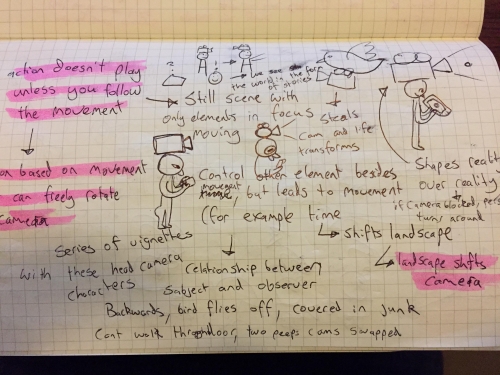 action doesn't play
unless you follow
the movement
we see
the world in the form
of stories
Still scene with
only elements in focus
moving
Steals
Cam and life
transforms
on based on movement
can freely rotate
camera
Control other element besides
movement
, but leads to movement
(for example time
Shapes reality
over reality
if camera blocked, pers
turns around
shifts landscape
landscape shifts
camera
Series of vignettes
with these head camera
characters
relationship between
subject and observer
Backwards, bird flies off, covered in junk
Cant walk through door, two peeps cams swapped